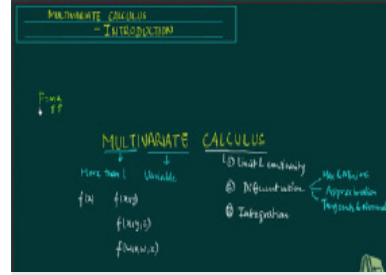 MULTIVARIATE CALCULUS
- INTRODUCTION
F=ma
MULTIVARIATE CALCULUS
More than 1 Variable
f(x) f(x,y)
f(x,y,z)
① Limit & continuity
② Differentiation
③ Integration
Max & Minima
Approximation